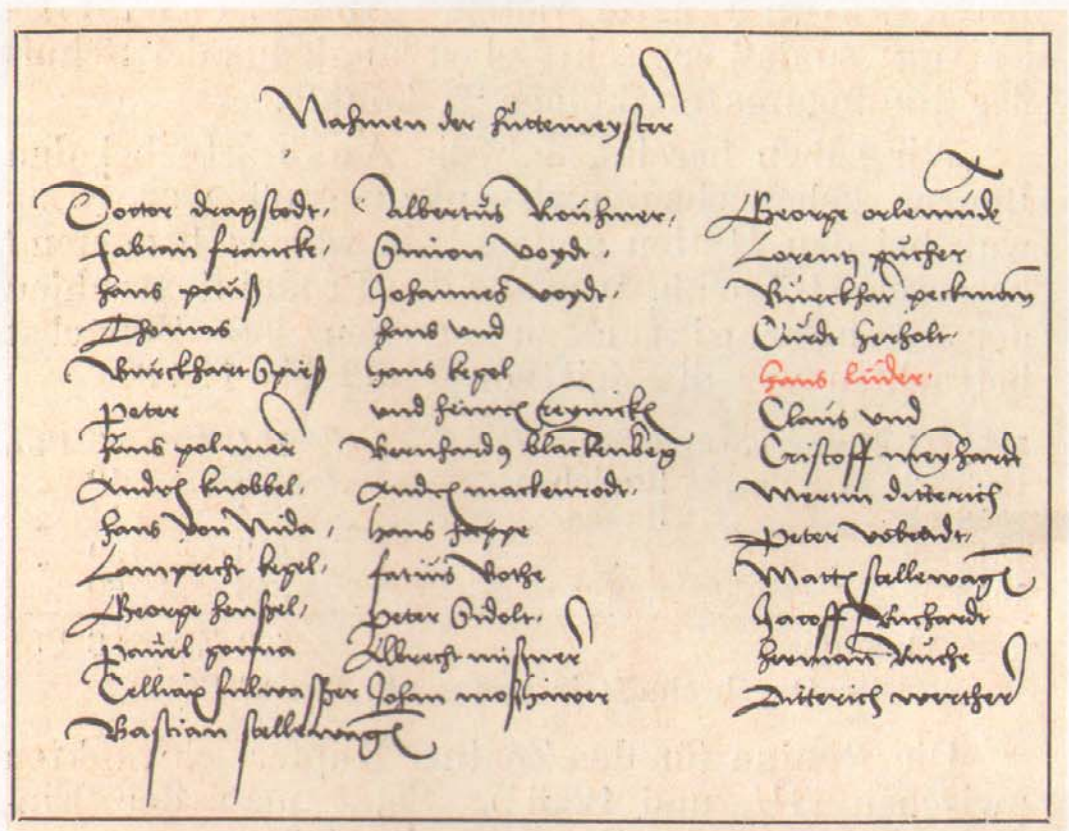 Nahmen der huttemeyster
Doctor dragstedt.
Fabian francke.
hans pauß
Thomas
Burckhart Spieß
Peter
hans polnner
Andres knobbel.
hans Von Nida.
Lamprecht kegel.
George henßel.
Pauel
Bastian stellewagen
Albertus
Simon voydt.
Johannes voydt.
hans vnd
hans kegel
vnd heinrich reynicke
Bernhardus blackenberg
Andres mackenrodt.
hans
Rothe
Peter Sidolt.
Albrecht mißner
Johan
George orlemude
Lorentz pucher
Burckhart peckmann
Curdt herholt.
hans luder.
Claus vnd
Cristoff meynhardt
Mertin ditterich
Peter
Matthes stellewagen
Jacoff Richardt
herman Ruche
Ditterich werther